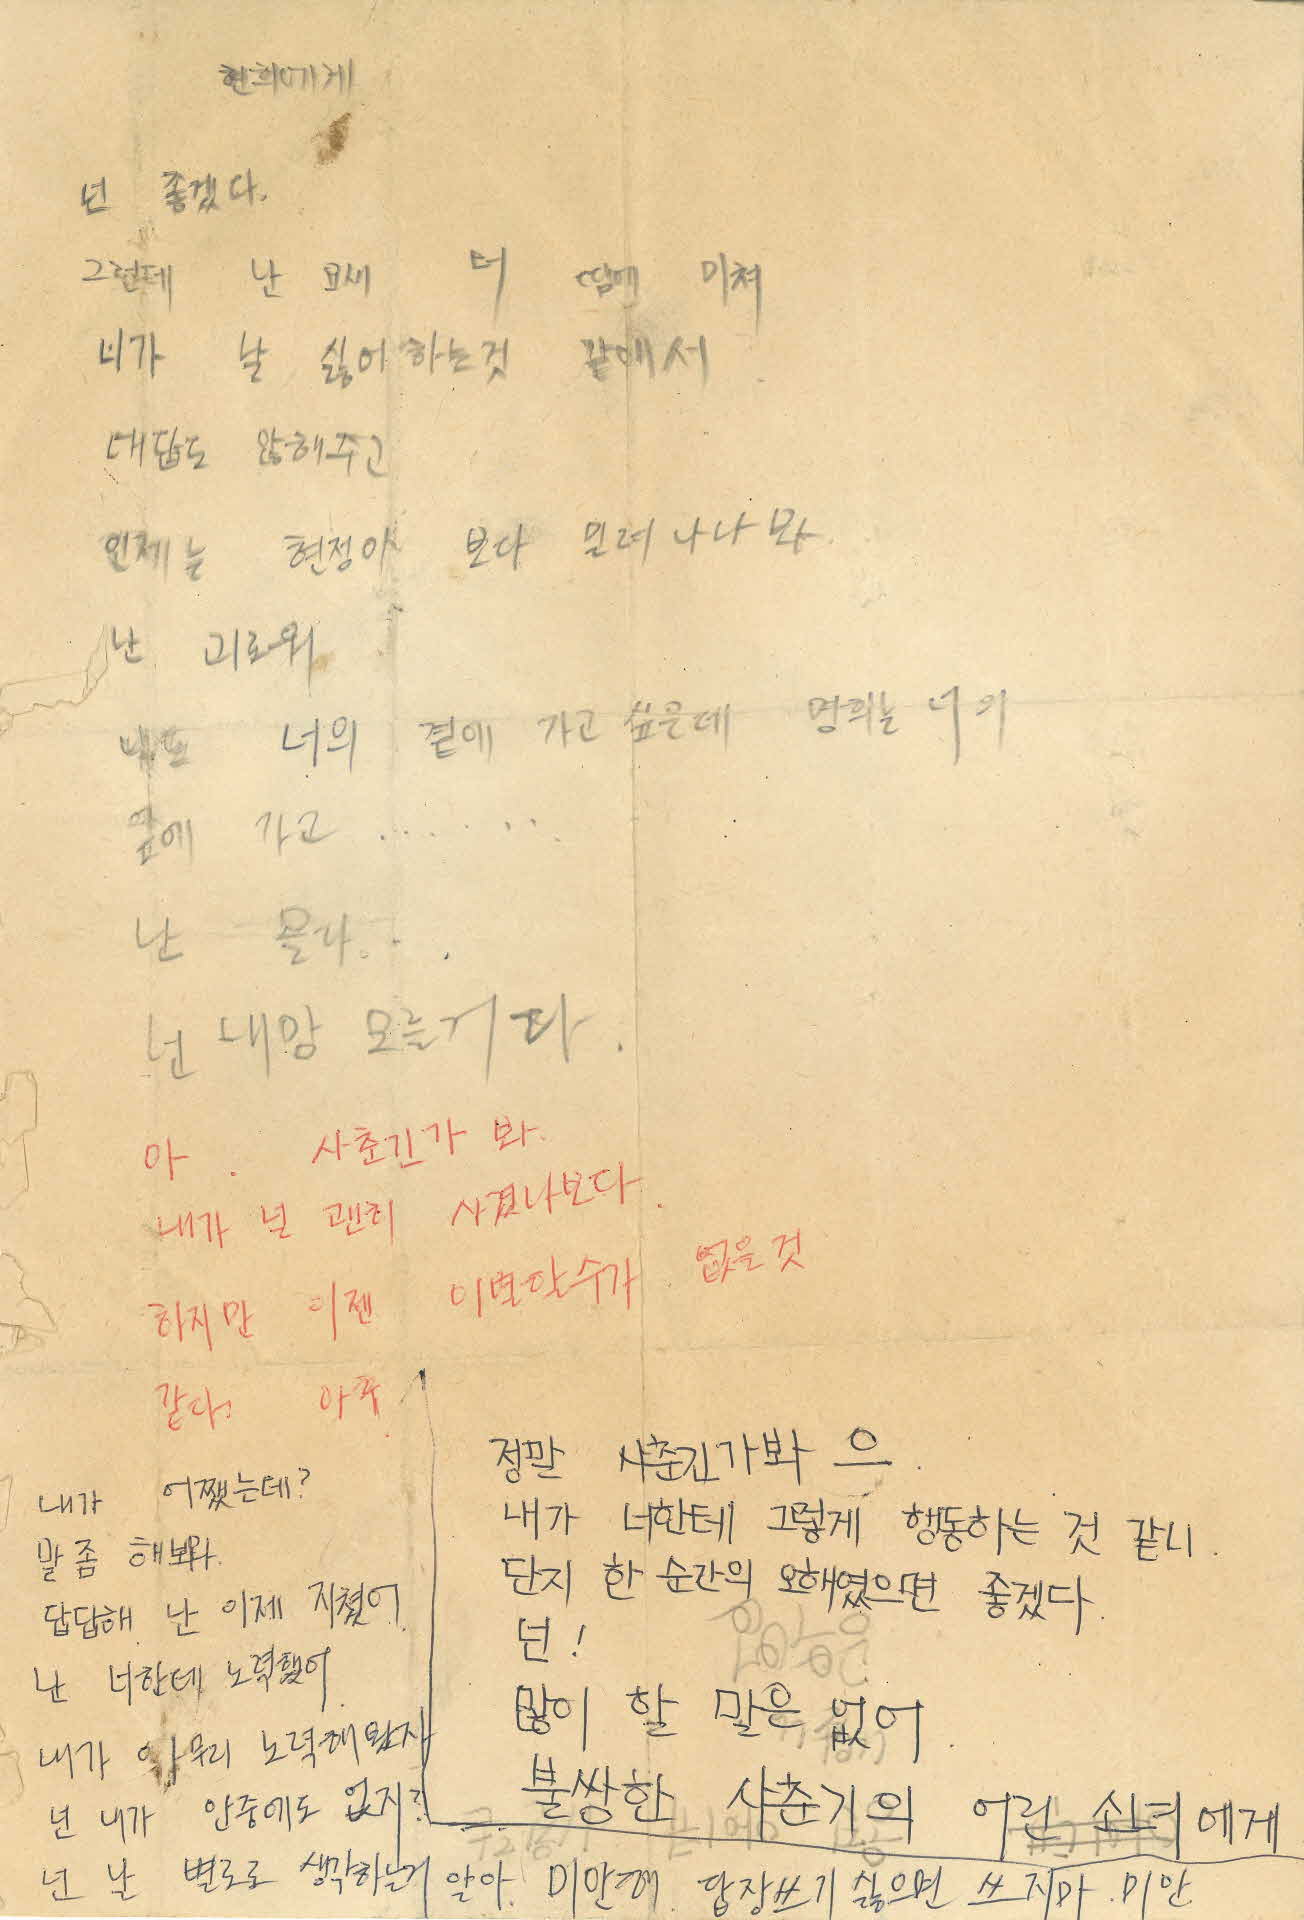 현희에게
넌 좋겠다.
그런데 난 요새 너 땜에 미쳐
네가 날 싫어하는것 같에서
대답도 않해주고
인제는 현정아 보다 밀려 나나 봐.
난 괴로워
내도 너의 곁에 가고 싶은데 명희는 너의
옆에 가고 .......
난 몰라...
넌 내맘 모를거다.
아. 사춘긴가 봐.
내가 널 괜히 사겼나보다.
하지만 이젠 이별할수가 없을것
같다. 아휴
정말 사춘긴가봐 으.
내가 너한테 그렇게 행동하는 것 같니.
단지 한 순간의 오해였으면 좋겠다.
넌!
많이 할 말은 없어.
불쌍한 사춘기의 어린 소녀에게
내가 어쨌는데?
말 좀 해봐.
답답해 난 이제 지쳤어.
난 너한테 노력했어.
내가 아무리 노력해 봤자
넌 내가 안중에도 없지?
넌 날 별로로 생각하는거 알아. 미안해. 답장쓰기 싫으면 쓰지마. 미안